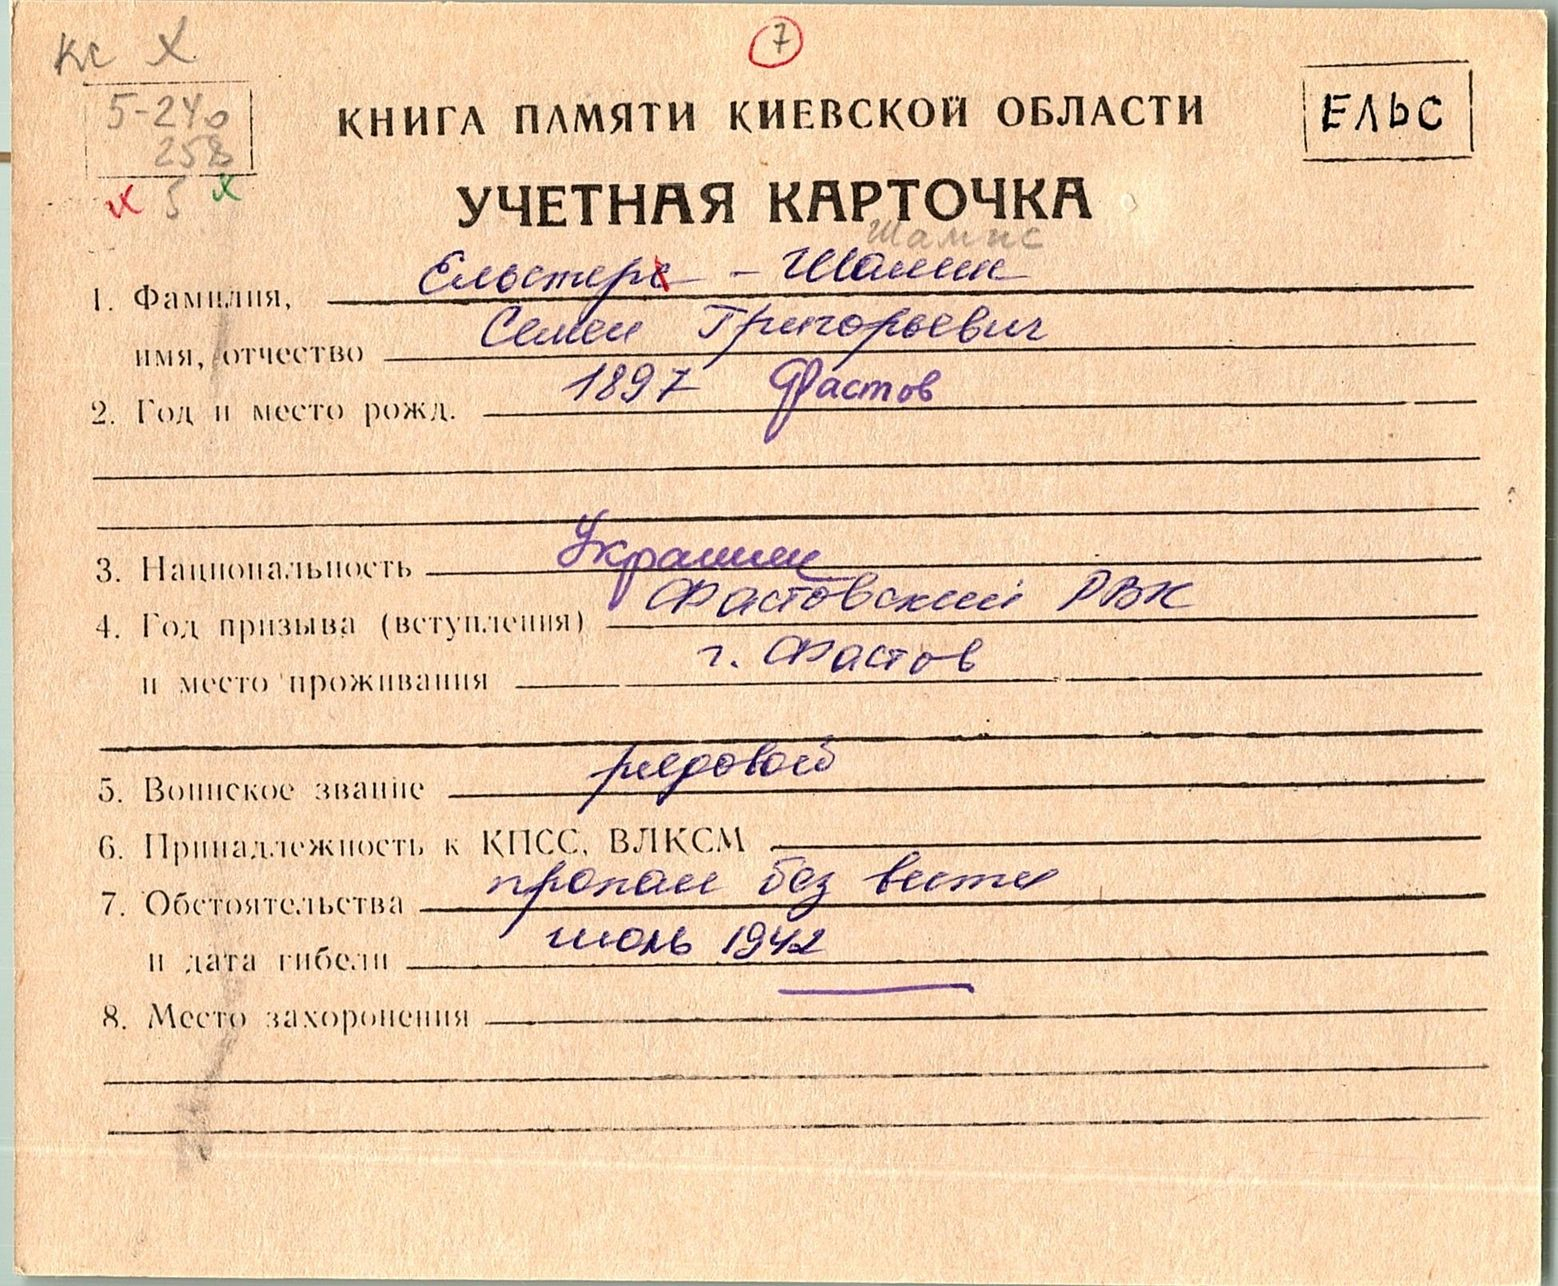 Кс X
7
5-240
258
5
КНИГА ПАМЯТИ КИЕВСКОЙ ОБЛАСТИ
ЕЛЬС
УЧЕТНАЯ КАРТОЧКА
Шампс
1. Фамилия, Ельстере - Шамис
имя, отчество Семен Григорьевич
2. Год и место рожд. 1897 Фастов
3. Национальность Украинец
4. Год призыва (вступления) Фастовский РВК
и место проживания г. Фастов
5. Воинское звание рядовой
6. Принадлежность к КПСС, ВЛКСМ
7. Обстоятельства пропал без вести
и дата гибели июль 1942
8. Место захоронения